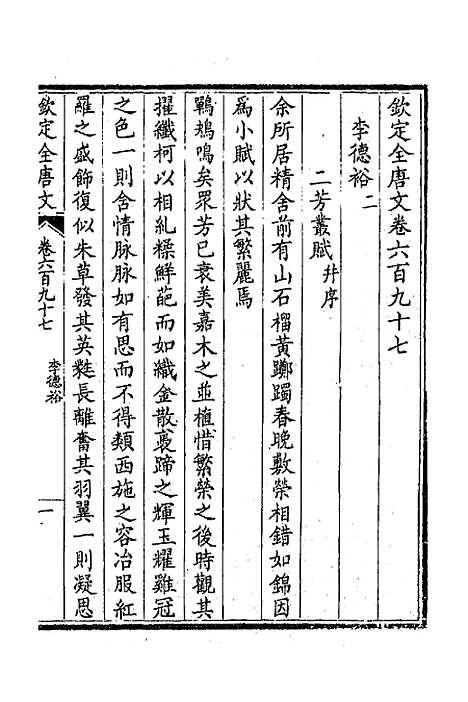 欽定全唐文卷六百九十七
李德裕二
二芳叢賦并序
余所居精舍前有山石榴黃躑躅春晚敷榮相錯如錦因
爲小賦以狀其繁麗焉
鶗鴂鳴矣衆芳已衰美嘉木之並植惜繁榮之後時觀其
擢纖柯以相糺糅鮮葩而如織金散褭蹄之輝玉耀雞冠
之色一則含情脉脉如有思而不得類西施之容冶服紅
羅之盛飾復似朱草發其英蕤長離奮其羽翼一則凝思
欽定全唐文
卷六百九十七
李德裕
一